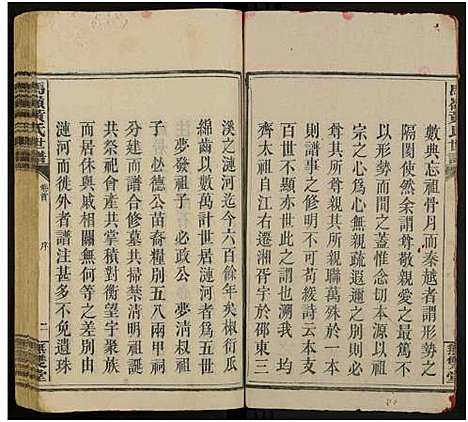 馬嶺黃氏世譜
無雙堂
數典忘祖骨月而秦越者謂形勢之
隔閡使然余謂尊敬親愛之最篤不
以形勢而間蓋惟念切本源以祖
宗之心為心無親疏遐邇之別則必
尊其所尊親其所親聯萬殊於一本
則譜事之修明不可苟緩詩云本支
百世不顯亦世此之謂也溯我 均
齊太祖自江右遷湘胥宇於邵東三
溪之漣河迄今六百餘年矣椒衍瓜
綿齒以萬數計世居漣河者為五世
夢發祖子 必政公 夢清叔祖
子 必德公苗裔糧別五八兩甲祠
分建而譜合修墓共掃禁清明祖誕
共祭祀會產共掌積對衡望宇聚族
戚相關無何等之差別由
漣河而徙外者譜注甚多不免遺珠
馬嶺黃氏世譜
卷首
序
二
無雙堂